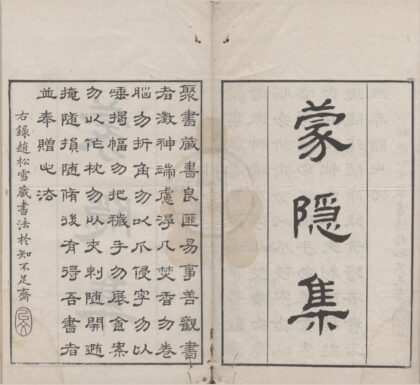 蒙隱集
聚書藏書良匪易事善觀書
者澂神端慮淨几焚香勿卷
腦勿折角勿以爪侵字勿以
唾揭幅勿把穢手勿展食案
勿以作枕勿以夾刺隨開隨
掩隨損隨脩後有得吾書者
並奉贈此法
右錄趙松雪藏書法於知不足齋